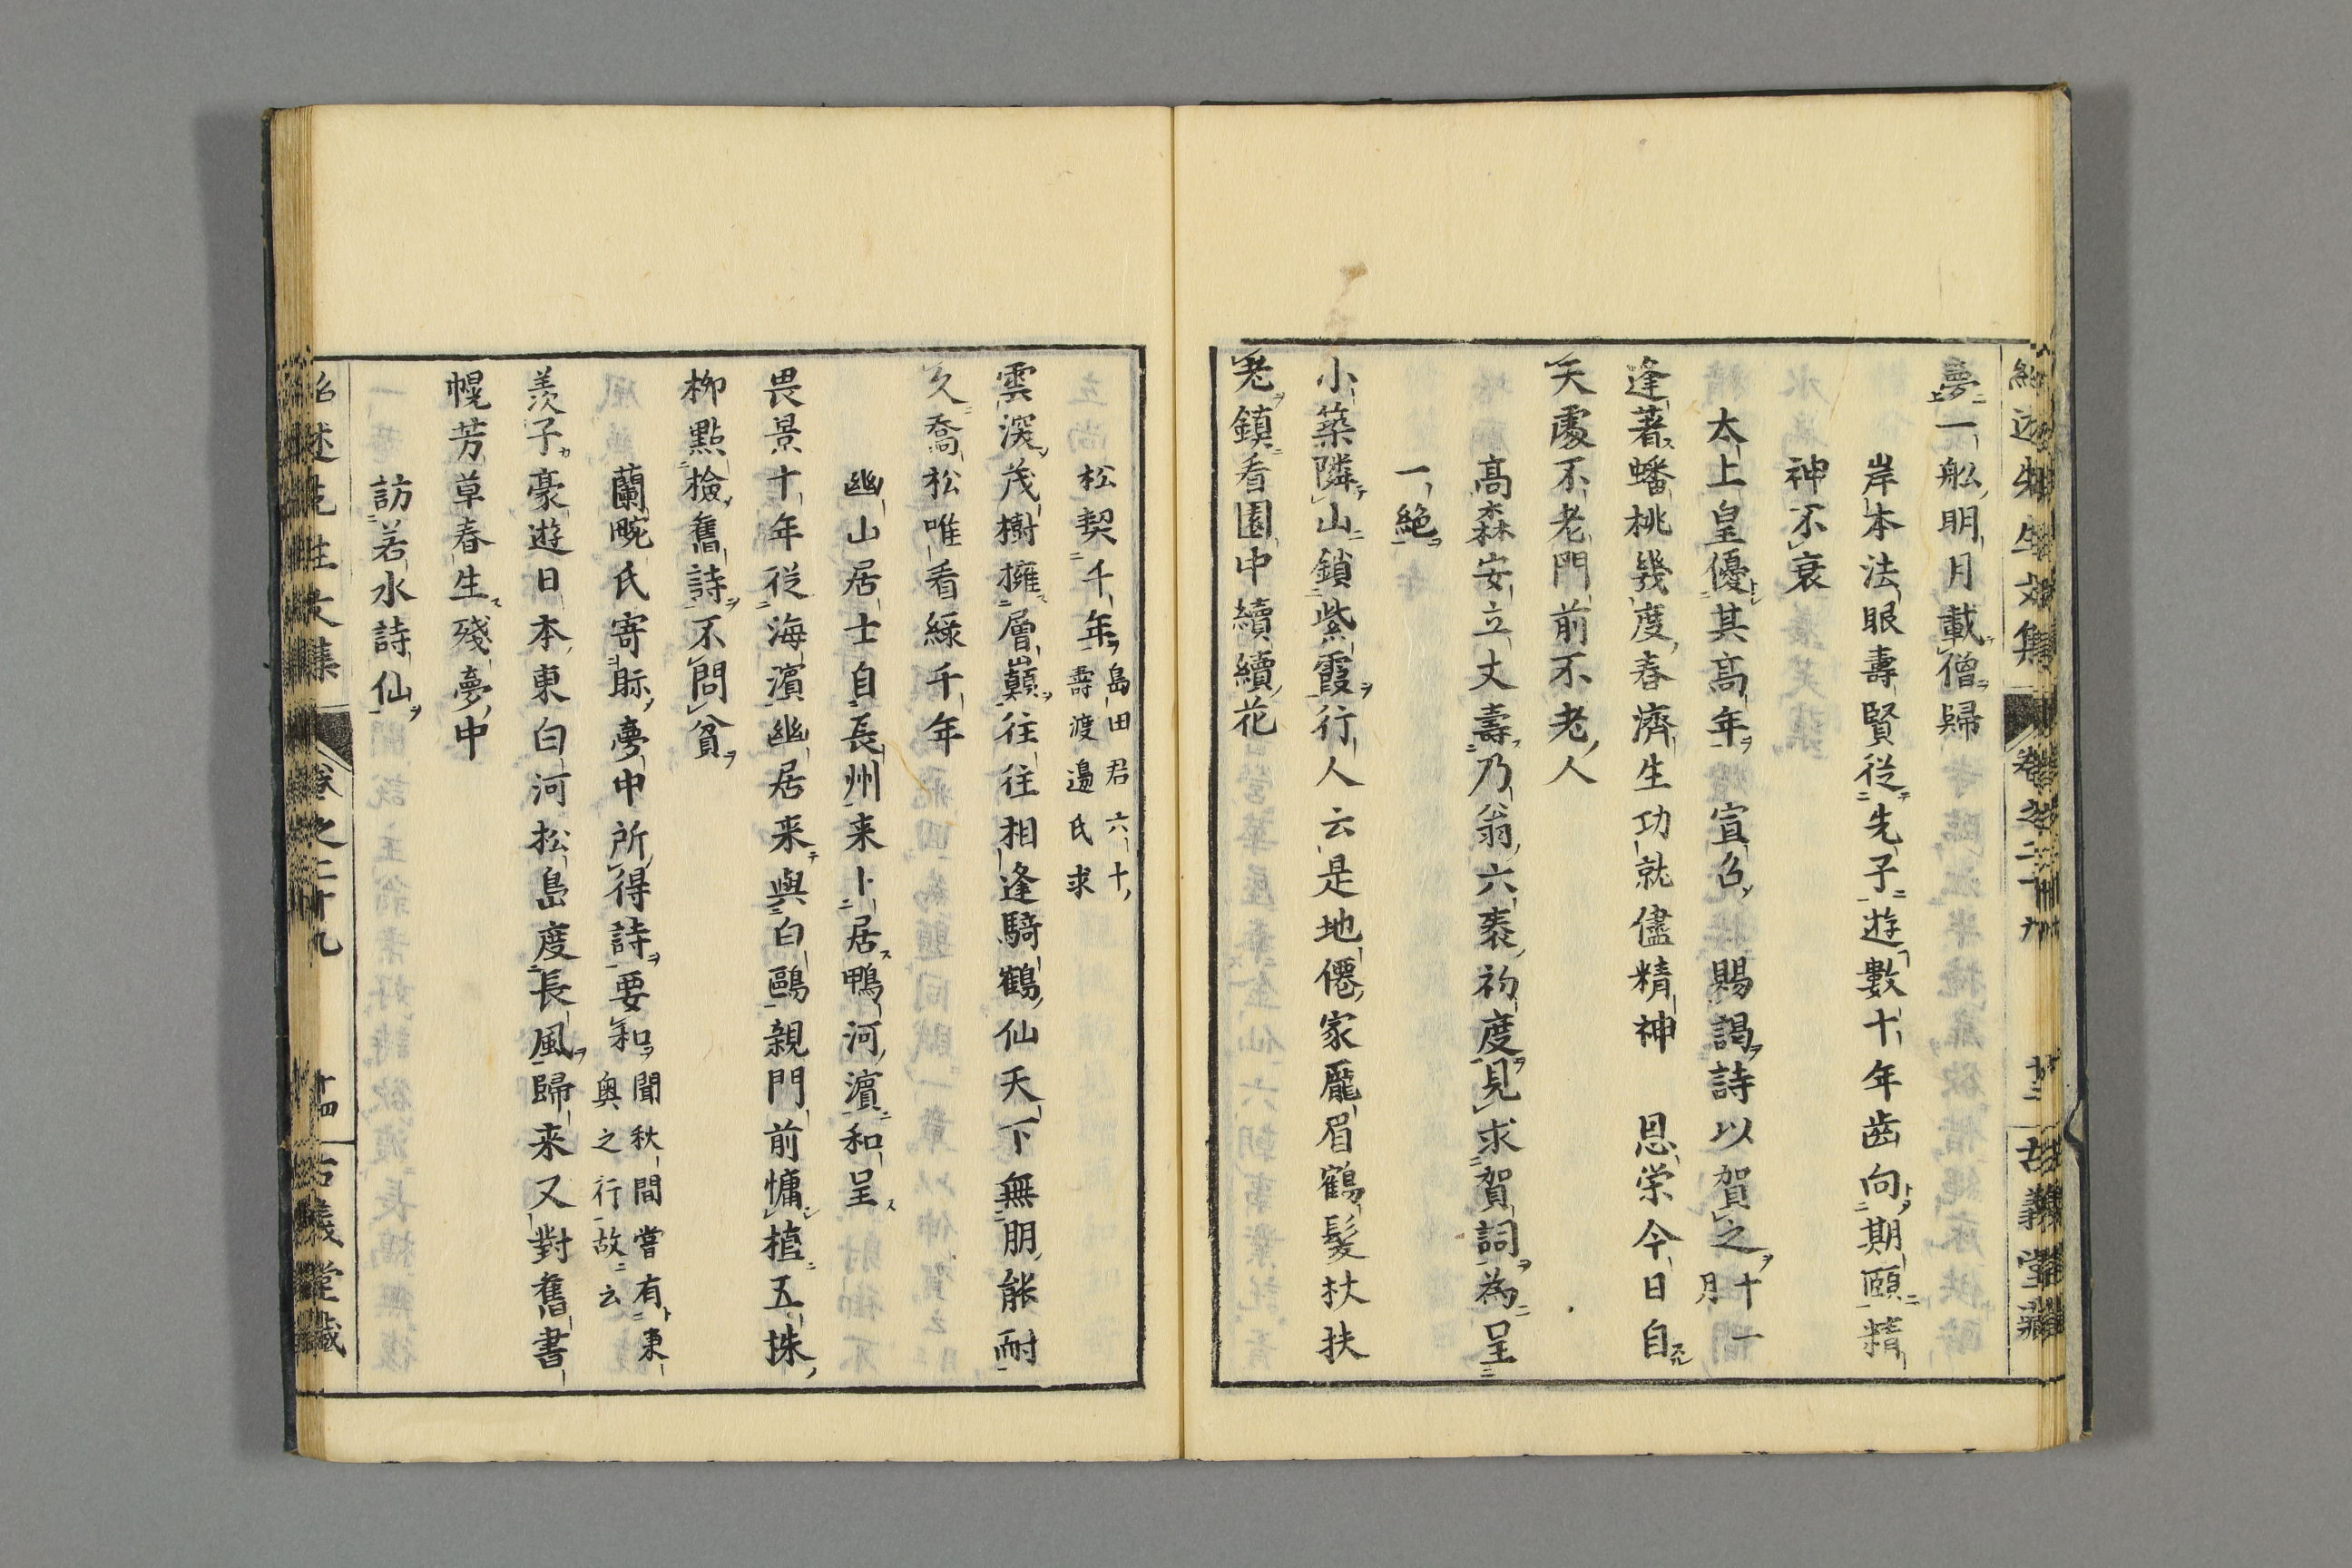 夢一船明月載僧歸
岸本法眼壽賢從先子遊數十年齒向期頤精
神不衰
太上皇優其高年宣召賜謁詩以賀之十一月
逢著蟠桃幾度春濟生功就儘精神恩栄今日自
天處不老門前不老人
高森安立丈壽乃翁六袠初度見求賀詞為呈
一絶
小築隣山鎖紫霞行人云是地僊家龎眉鶴髮杖扶
老鎮看園中續續花
松契千年島田君六十壽渡邉氏求
雲深茂樹擁層巓往往相逢騎鶴仙天下無朋能耐
久喬松唯看綠千年
幽山居士自長州来卜居鴨河濵和呈
畏景十年從海濵幽居来與白鷗親門前慵植五株
柳點檢舊詩不問貧
蘭畹氏寄眎夢中所得詩要和聞秋間嘗有東奥之行故云
羨子豪遊日本東白河松島度長風歸来又對舊書
幌芳草春生殘夢中
訪若水詩仙
紹述先生文集 卷之二十九 十四 古義堂藏